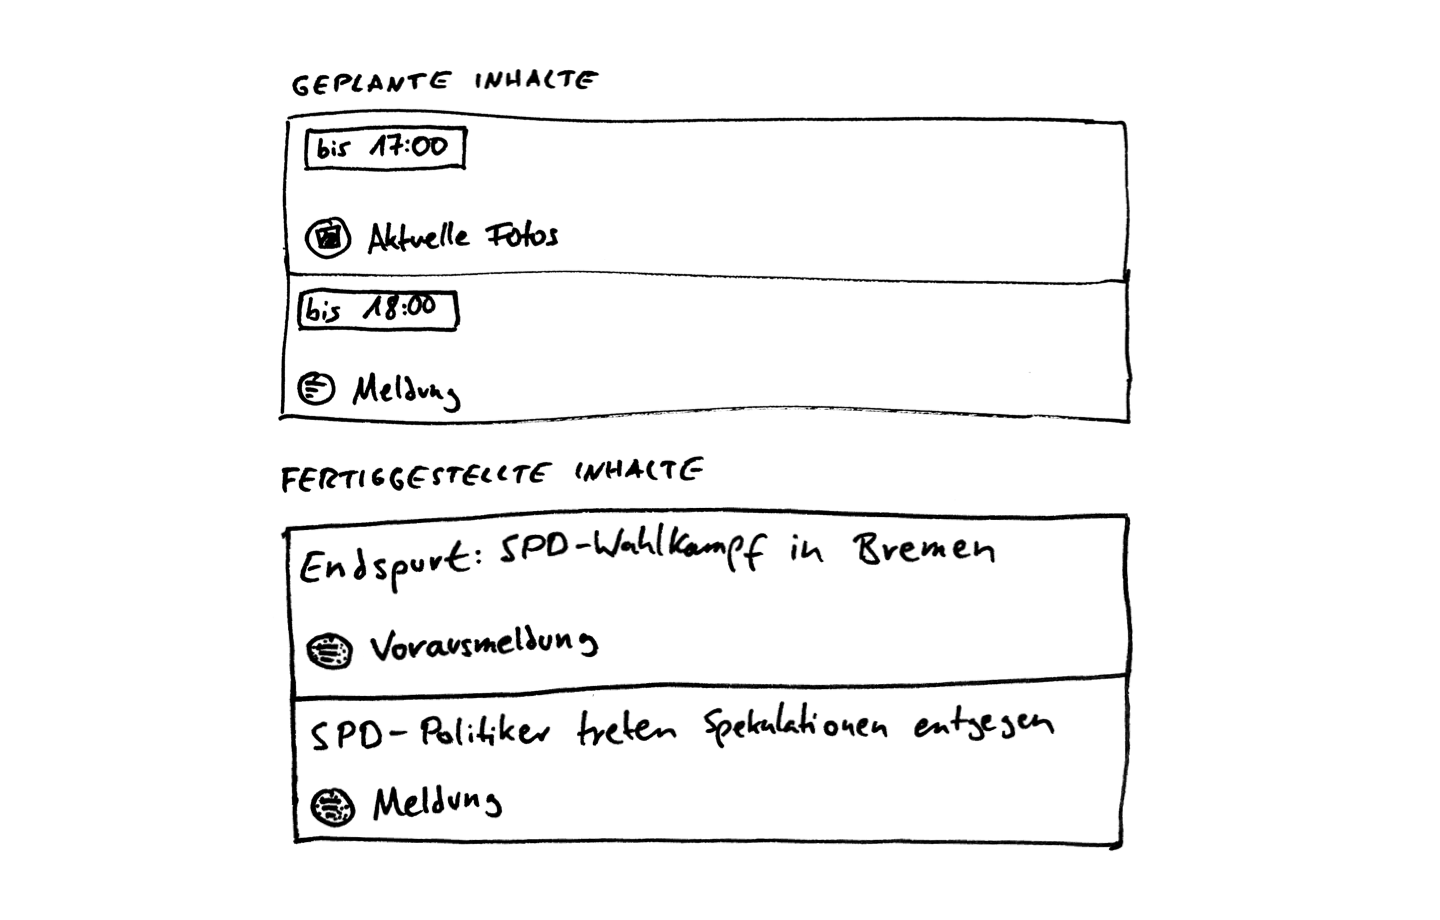 GEPLANTE INHALTE
bis 17:00
Aktuelle Fotos
bis 18:00
Meldung
FERTIGGESTELLTE INHALTE
Endspurt: SPD-Wahlkampf in Bremen
Vorausmeldung
SPD-Politiker treten Spekulationen entgegen
Meldung